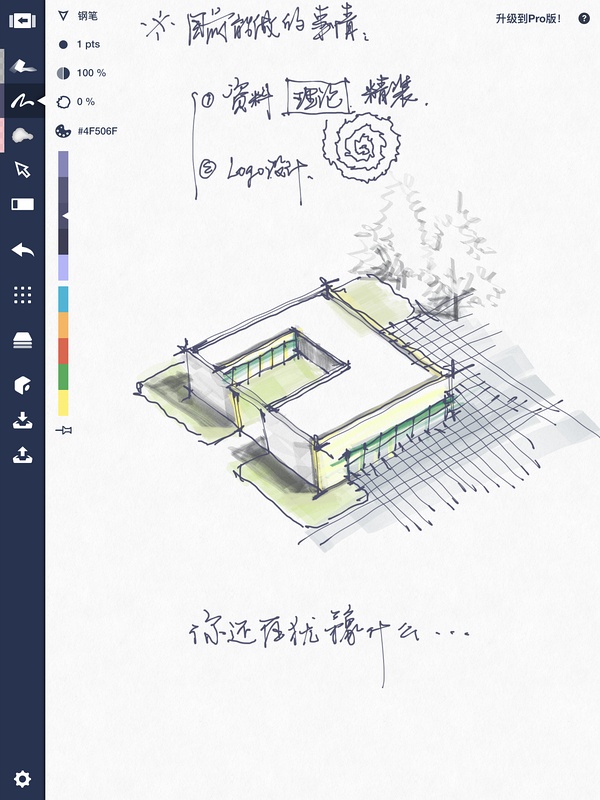 钢笔
1 pts
100 %
0 %
#4F506F
升级到Pro版!
?
的事情:
① 资料 理论 精装.
② Logo设计.
你还在犹豫什么...